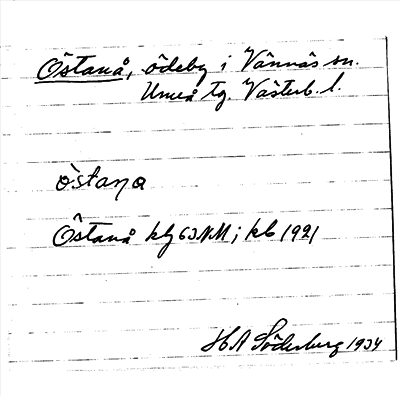 Östanå, ödeby i Vännäs sn.
Umeå tg. Västerb. l.
östaŋa
Östanå kbj 63 NM; kb 1921
HA Söderberg 1934